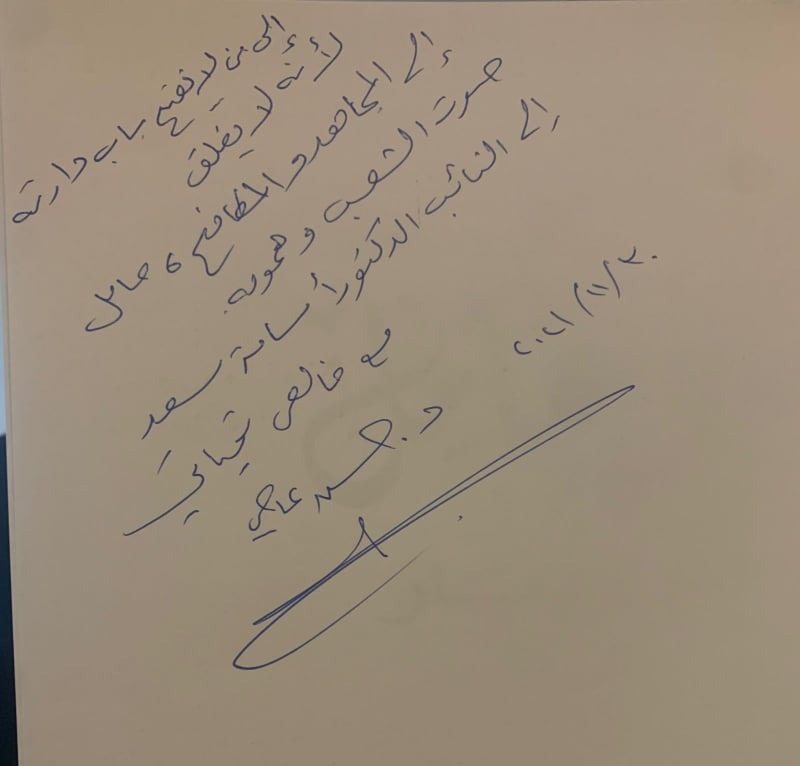 إلى من لا تفتح باب دارته
لأنه لا يغلق
إلى المجاهد والمكافح، حامل
صوت الشعب وهمومه
إلى النائب الدكتور أسامة سعد
مع خالص تحياتي
د. حسن عاصي
٢٠٢١/١١/٣٠